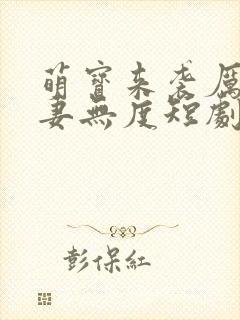 萌寶來袭厲
妻無度短劇
彭保紅